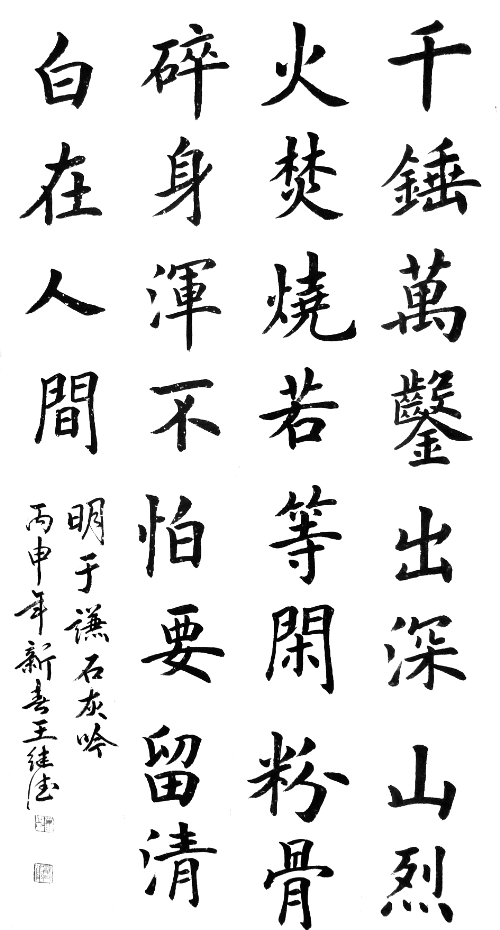 千錘萬鑿出深山烈
火焚燒若等閑粉骨
碎身渾不怕要留清
白在人間
明于謙石灰吟
丙申年新春王继法